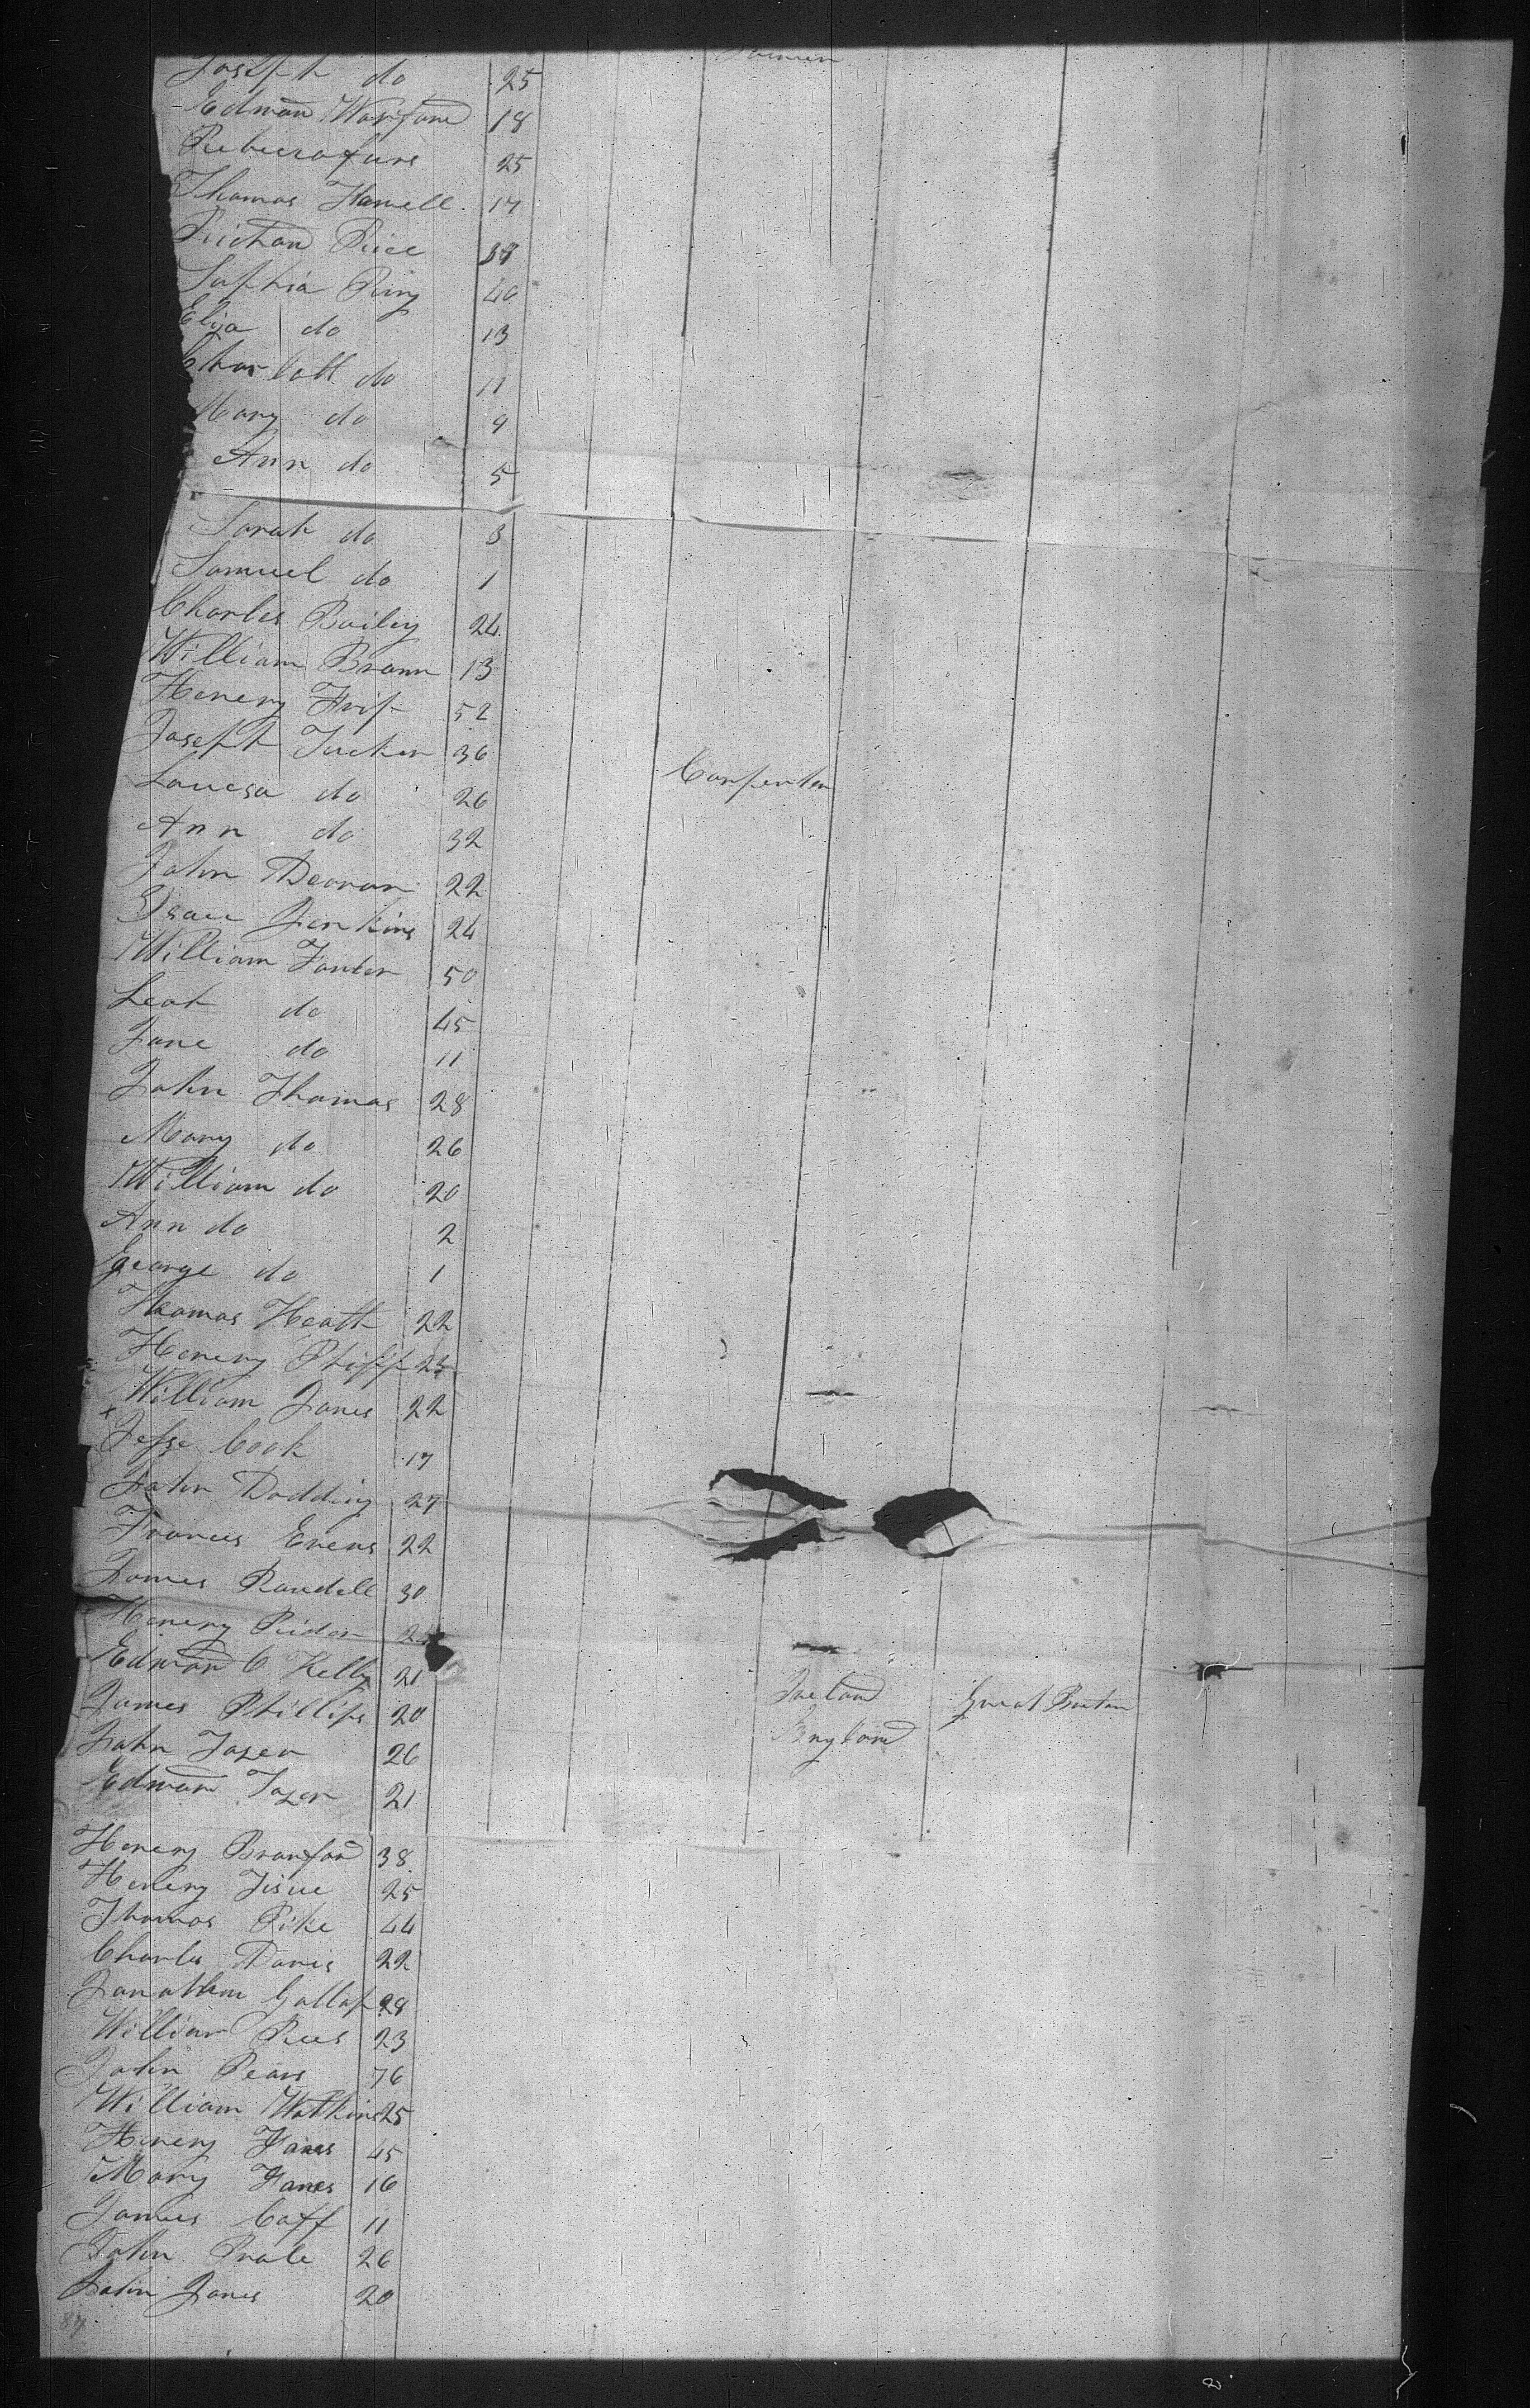 Joseph do 25
Edman Warfand 18
25
Thomas Hamell 17
Richard Rice 38
Sophia Ring 40
Eliza do 13
Charlott do 11
Mary do 9
Ann do 5
Sarah do 3
Samuel do 1
Charles Bailey 24
William Brown 13
Henery 52
Joseph Tucker 36 Carpenter
Louesa do 26
Ann do 32
John 22
Isaac Jenkins 24
William 50
Leah do 45
Jane do 11
John Thomas 28
Mary do 26
William do 20
Ann do 2
George do 1
Thomas Heath 22
Henery
William Jones 22
Jesse Cook 17
John Dodding 27
Frances Evens 22
James Randell 30
Henery
Edmand C Kelly 21 Ireland Great
James Phillips 20 England
John Tozer 26
Edman Tozer 21
Henery Branford 38
Henery 25
Thomas Pike 44
Charles Davis 22
Jonathan Gallop 28
William Rees 23
John Pears 76
William Watkins 25
Henery Hanes 45
Mary Hanes 16
James Coff 11
John Prole 26
John Jones 20
87